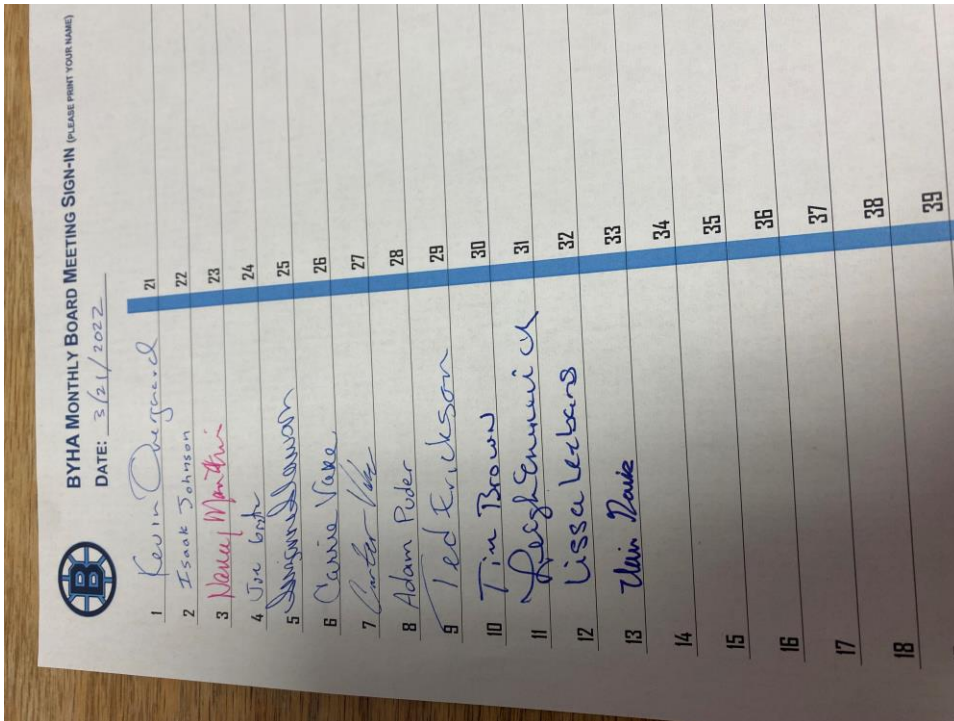 BYHA MONTHLY BOARD MEETING SIGN-IN (PLEASE PRINT YOUR NAME)
DATE: 3/21/2022
B
1 Kevin Overgaard
2 Isaak Johnson
3 Nancy
4 Joe
5
6 Carrie Vake
7 Carter Vake
8 Adam Puder
9 Ted Erickson
10 Tim Brown
11 Leigh Emmerich
12 Lissa
13
14
15
16
17
18
21
22
23
24
25
26
27
28
29
30
31
32
33
34
35
36
37
38
39